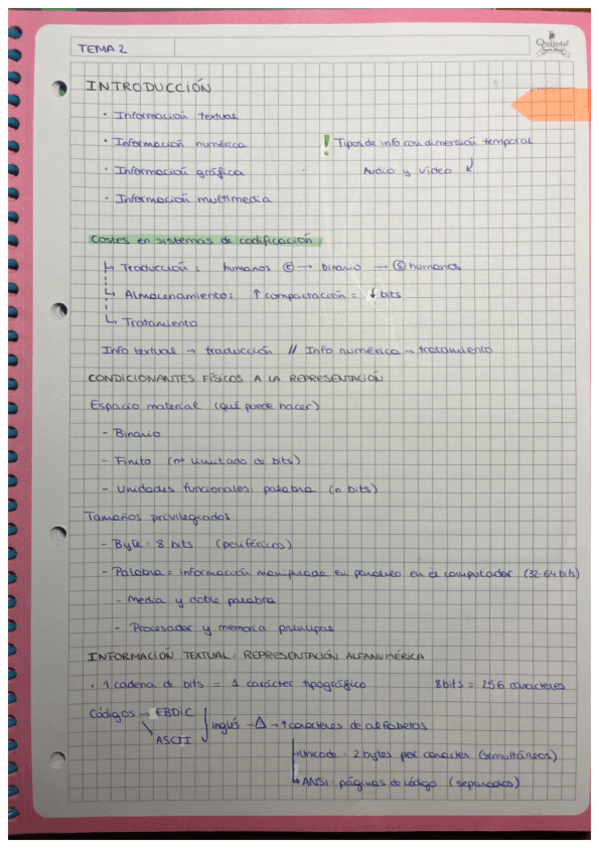 TEMA 2
Quijote
INTRODUCCIÓN
· Información textual
· Información numérica
! Tipos de info con dimensión temporal
· Información gráfica
Audio y vídeo
· Información multimedia
Costes en sistemas de codificación
↳ Traducción: humanos Ⓔ → binario → Ⓢ humanos
↳ Almacenamiento: ↑ compactación = ↓ bits
↳ Tratamiento
Info textual → traducción // Info numérica → tratamiento
CONDICIONANTES FÍSICOS A LA REPRESENTACIÓN
Espacio material (qué puede hacer)
- Binario
- Finito (nº limitado de bits)
- Unidades funcionales: palabra (n bits)
Tamaños privilegiados
- Byte = 8 bits (periféricos)
- Palabra = información manipulada en paralelo en el computador (32-64 bits)
- Media y doble palabra
- Procesador y memoria principal
INFORMACIÓN TEXTUAL: REPRESENTACIÓN ALFANUMÉRICA
· 1 cadena de bits = 1 carácter tipográfico 8 bits = 256 caracteres
Códigos → EBDIC
ASCII
inglés - Δ → ↑ caracteres de alfabetos
→ Unicode: 2 bytes por caracter (simultáneos)
↳ ANSI: páginas de código (separados)